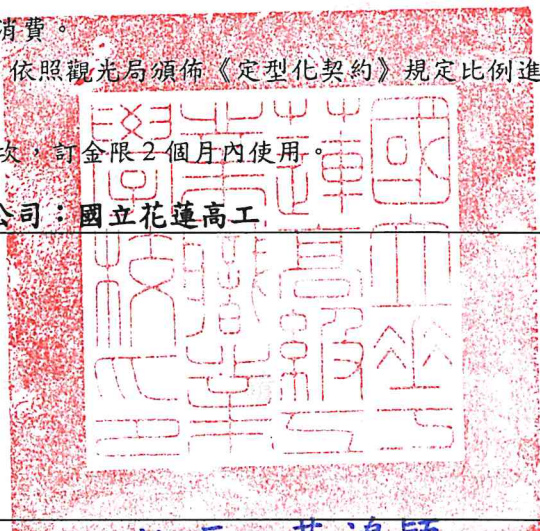 消費。
依照觀光局頒佈《定型化契約》規定比例進
次,訂金限2個月內使用。
公司:國立花蓮高工
國立花蓮高級工業職業學校之印